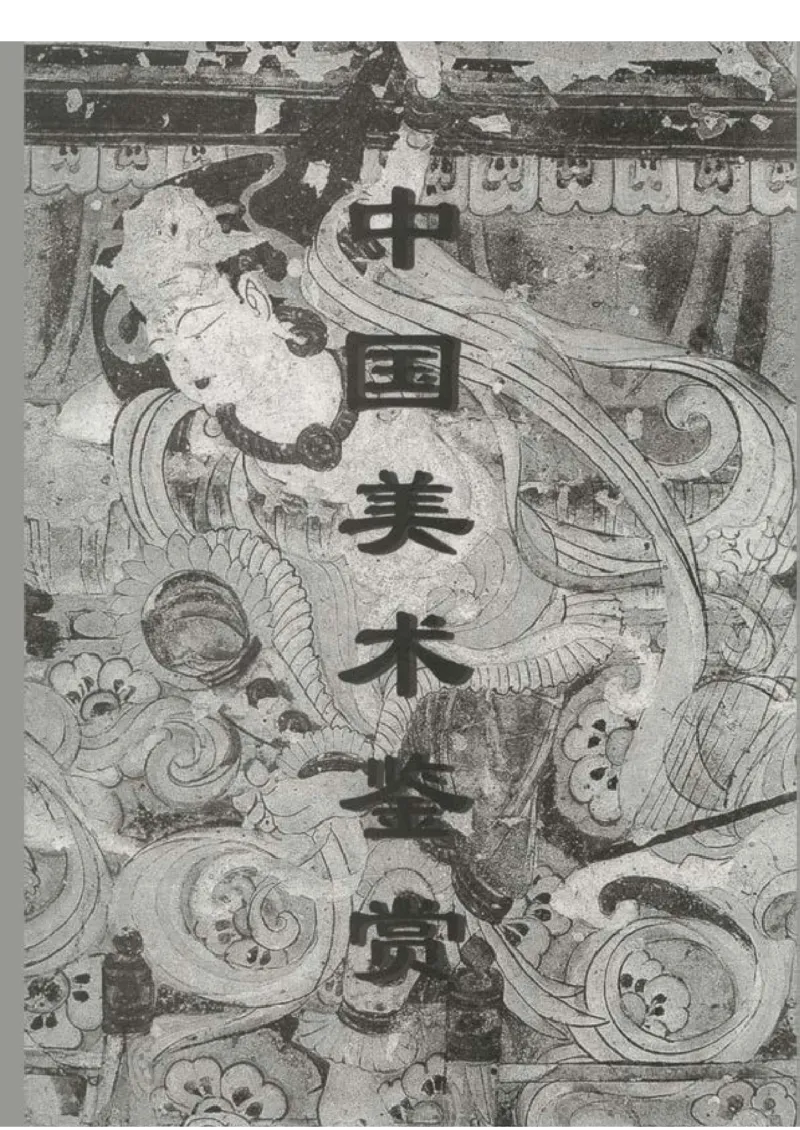 中国美术鉴赏